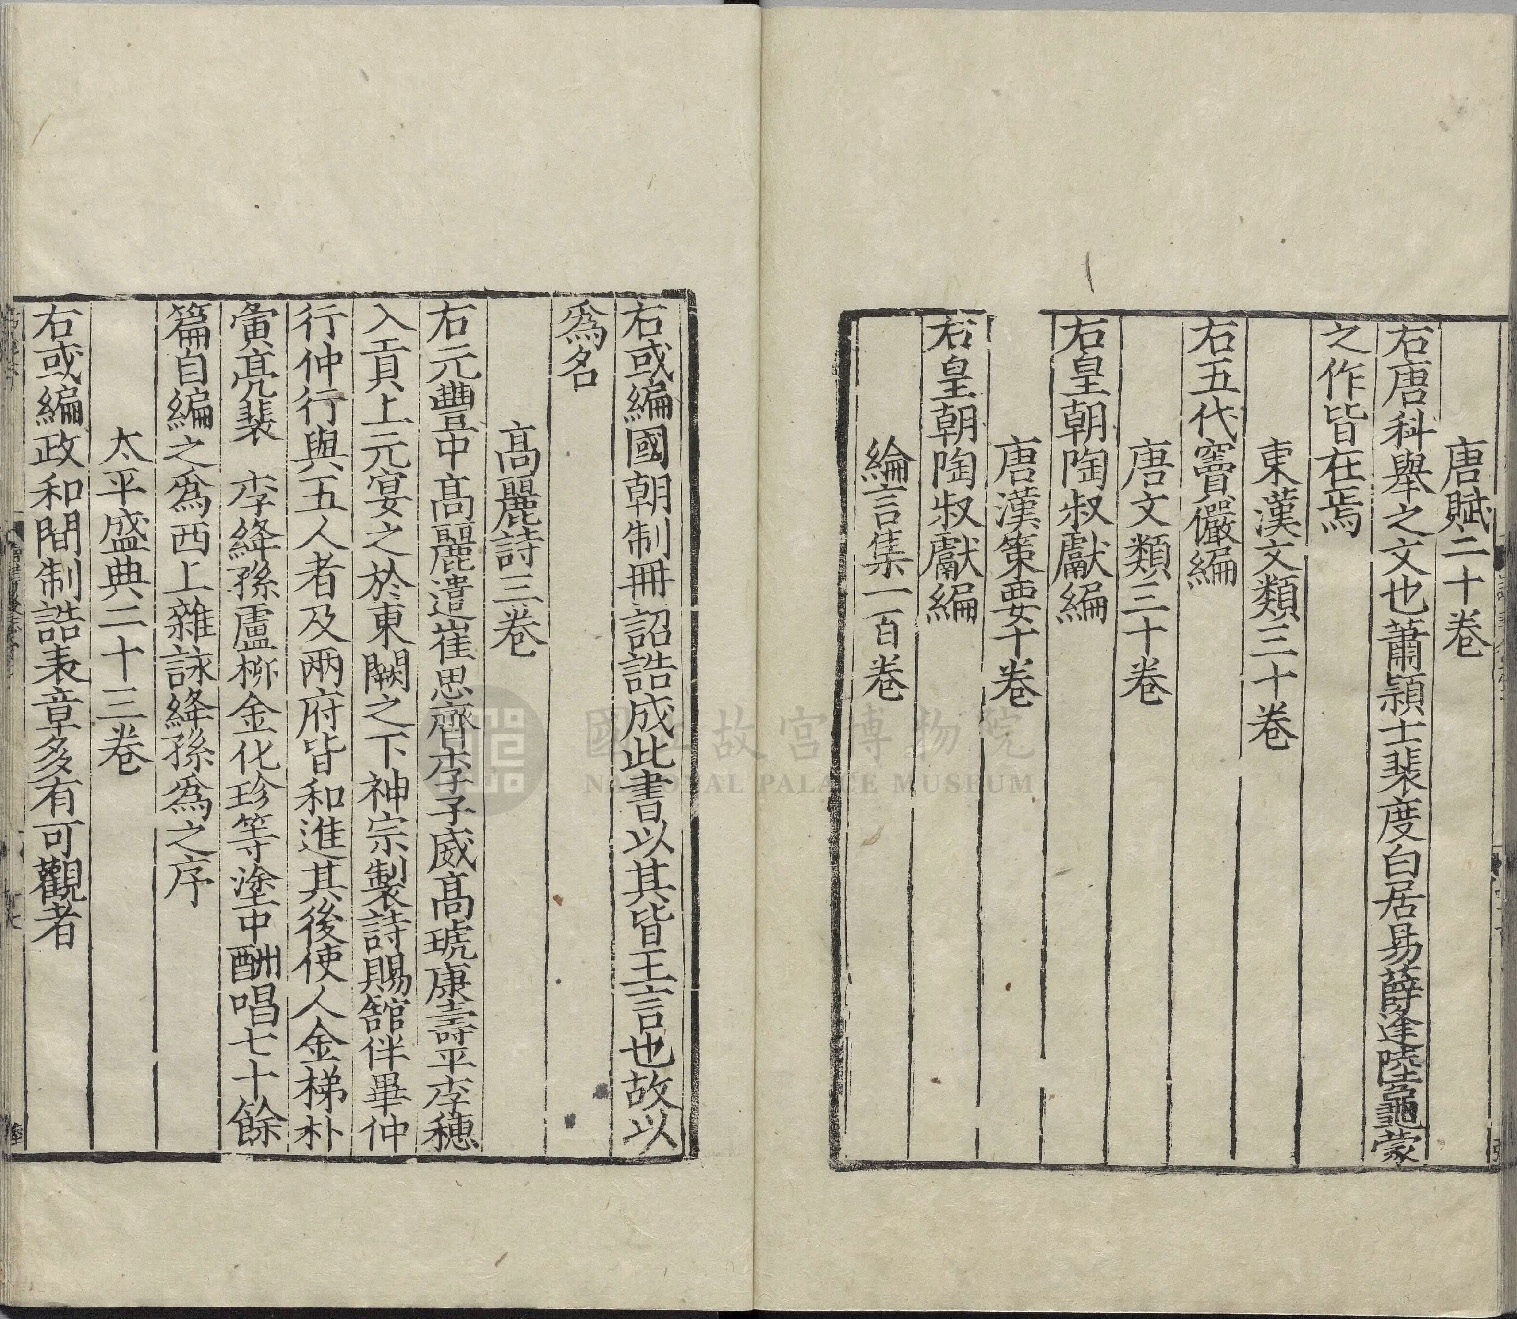 唐賦二十卷
右唐科舉之文也蕭潁士裴度白居易薛逢陸龜蒙
之作皆在焉
東漢文類三十卷
右五代竇儼編
唐文類三十卷
右皇朝陶叔獻編
唐漢策要十卷
右皇朝陶叔獻編
綸言集一百卷
右或編國朝制冊詔誥成此書以其皆王言也故以
爲名
高麗詩三卷
右元豐中高麗遣崔思齊李子威高琥康壽平李穗
入貢上元宴之於東闕之下神宗製詩賜館伴畢仲
行仲行與五人者及兩府皆和進其後使人金梯朴
寅亮裴 李絳孫盧栁金化珍等塗中酬唱七十餘
篇自編之爲西上雜詠絳孫爲之序
太平盛典二十三卷
右或編政和間制誥表章多有可觀者
國立故宮博物院
NATIONAL PALACE MUSEUM